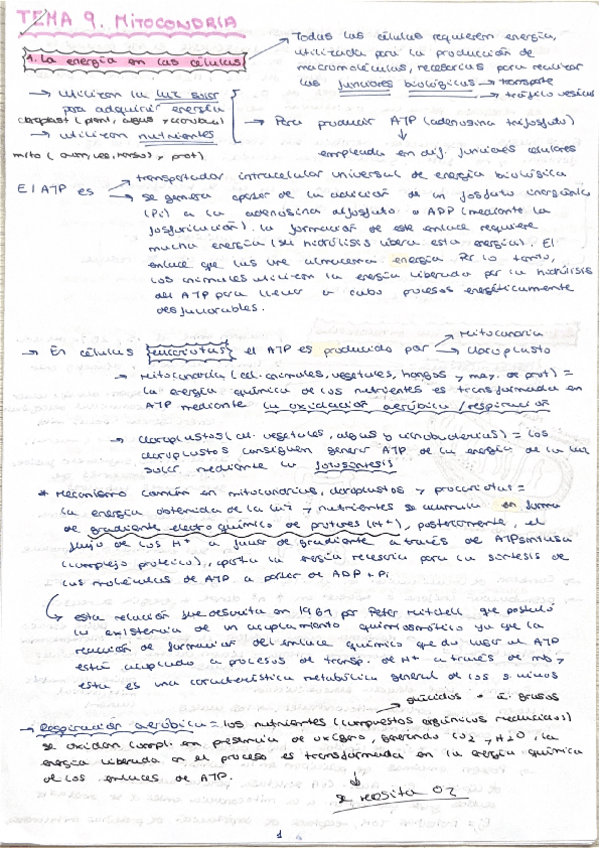 TEMA 9. MITOCONDRIA
1. La energía en las células
→ Todas las células requieren energía,
utilizada para la producción de
macromoléculas, necesarias para realizar
las funciones biológicas → transporte
→ tráfico vesicular
→ utilizan la luz solar
para adquirir energía
cloroplast (plant, algas y cianobac)
→ utilizan nutrientes
mito (animales, hongos y prot)
→ Para producir ATP (adenosina trifosfato)
empleada en dif. funciones celulares
El ATP es → transportador intracelular universal de energía biológica
→ se genera a partir de la adición de un fosfato inorgánico
(Pi) a la adenosina difosfato o ADP (mediante la
fosforilación). La formación de este enlace requiere
mucha energía (su hidrólisis libera esta energía). El
enlace que las une almacena energía. Por lo tanto,
los animales utilizan la energía liberada por la hidrólisis
del ATP para llevar a cabo procesos energéticamente
desfavorables.
→ En células eucariotas el ATP es producido por → Mitocondria
→ Cloroplasto
→ Mitocondria (cél. animales, vegetales, hongos y may. de prot) =
la energía química de los nutrientes es transformada en
ATP mediante la oxidación aeróbica / respiración
→ Cloroplastos (cél. vegetales, algas y cianobacterias) = los
cloroplastos consiguen generar ATP de la energía de la luz
solar mediante la fotosíntesis
* Mecanismo común en mitocondrias, cloroplastos y procariotas =
la energía obtenida de la luz y nutrientes se acumula en forma
de gradiente electroquímico de protones (H+), posteriormente, el
flujo de los H+ a favor de gradiente a través de ATPsintasa
(complejo proteico), aporta la energía necesaria para la síntesis de
las moléculas de ATP a partir de ADP + Pi
esta relación fue descrita en 1961 por Peter Mitchell que postuló
la existencia de un acoplamiento quimiosmótico ya que la
reacción de formación del enlace químico que da lugar al ATP
está acoplado a procesos de transp. de H+ a través de mb y
esta es una característica metabólica general de los 3 reinos
→ glúcidos + á. grasos
→ Respiración aeróbica = los nutrientes (compuestos orgánicos reducidos)
se oxidan compl. en presencia de oxígeno, generando CO2 y H2O, la
energía liberada en el proceso es transformada en la energía química
de los enlaces de ATP.
se necesita O2
1